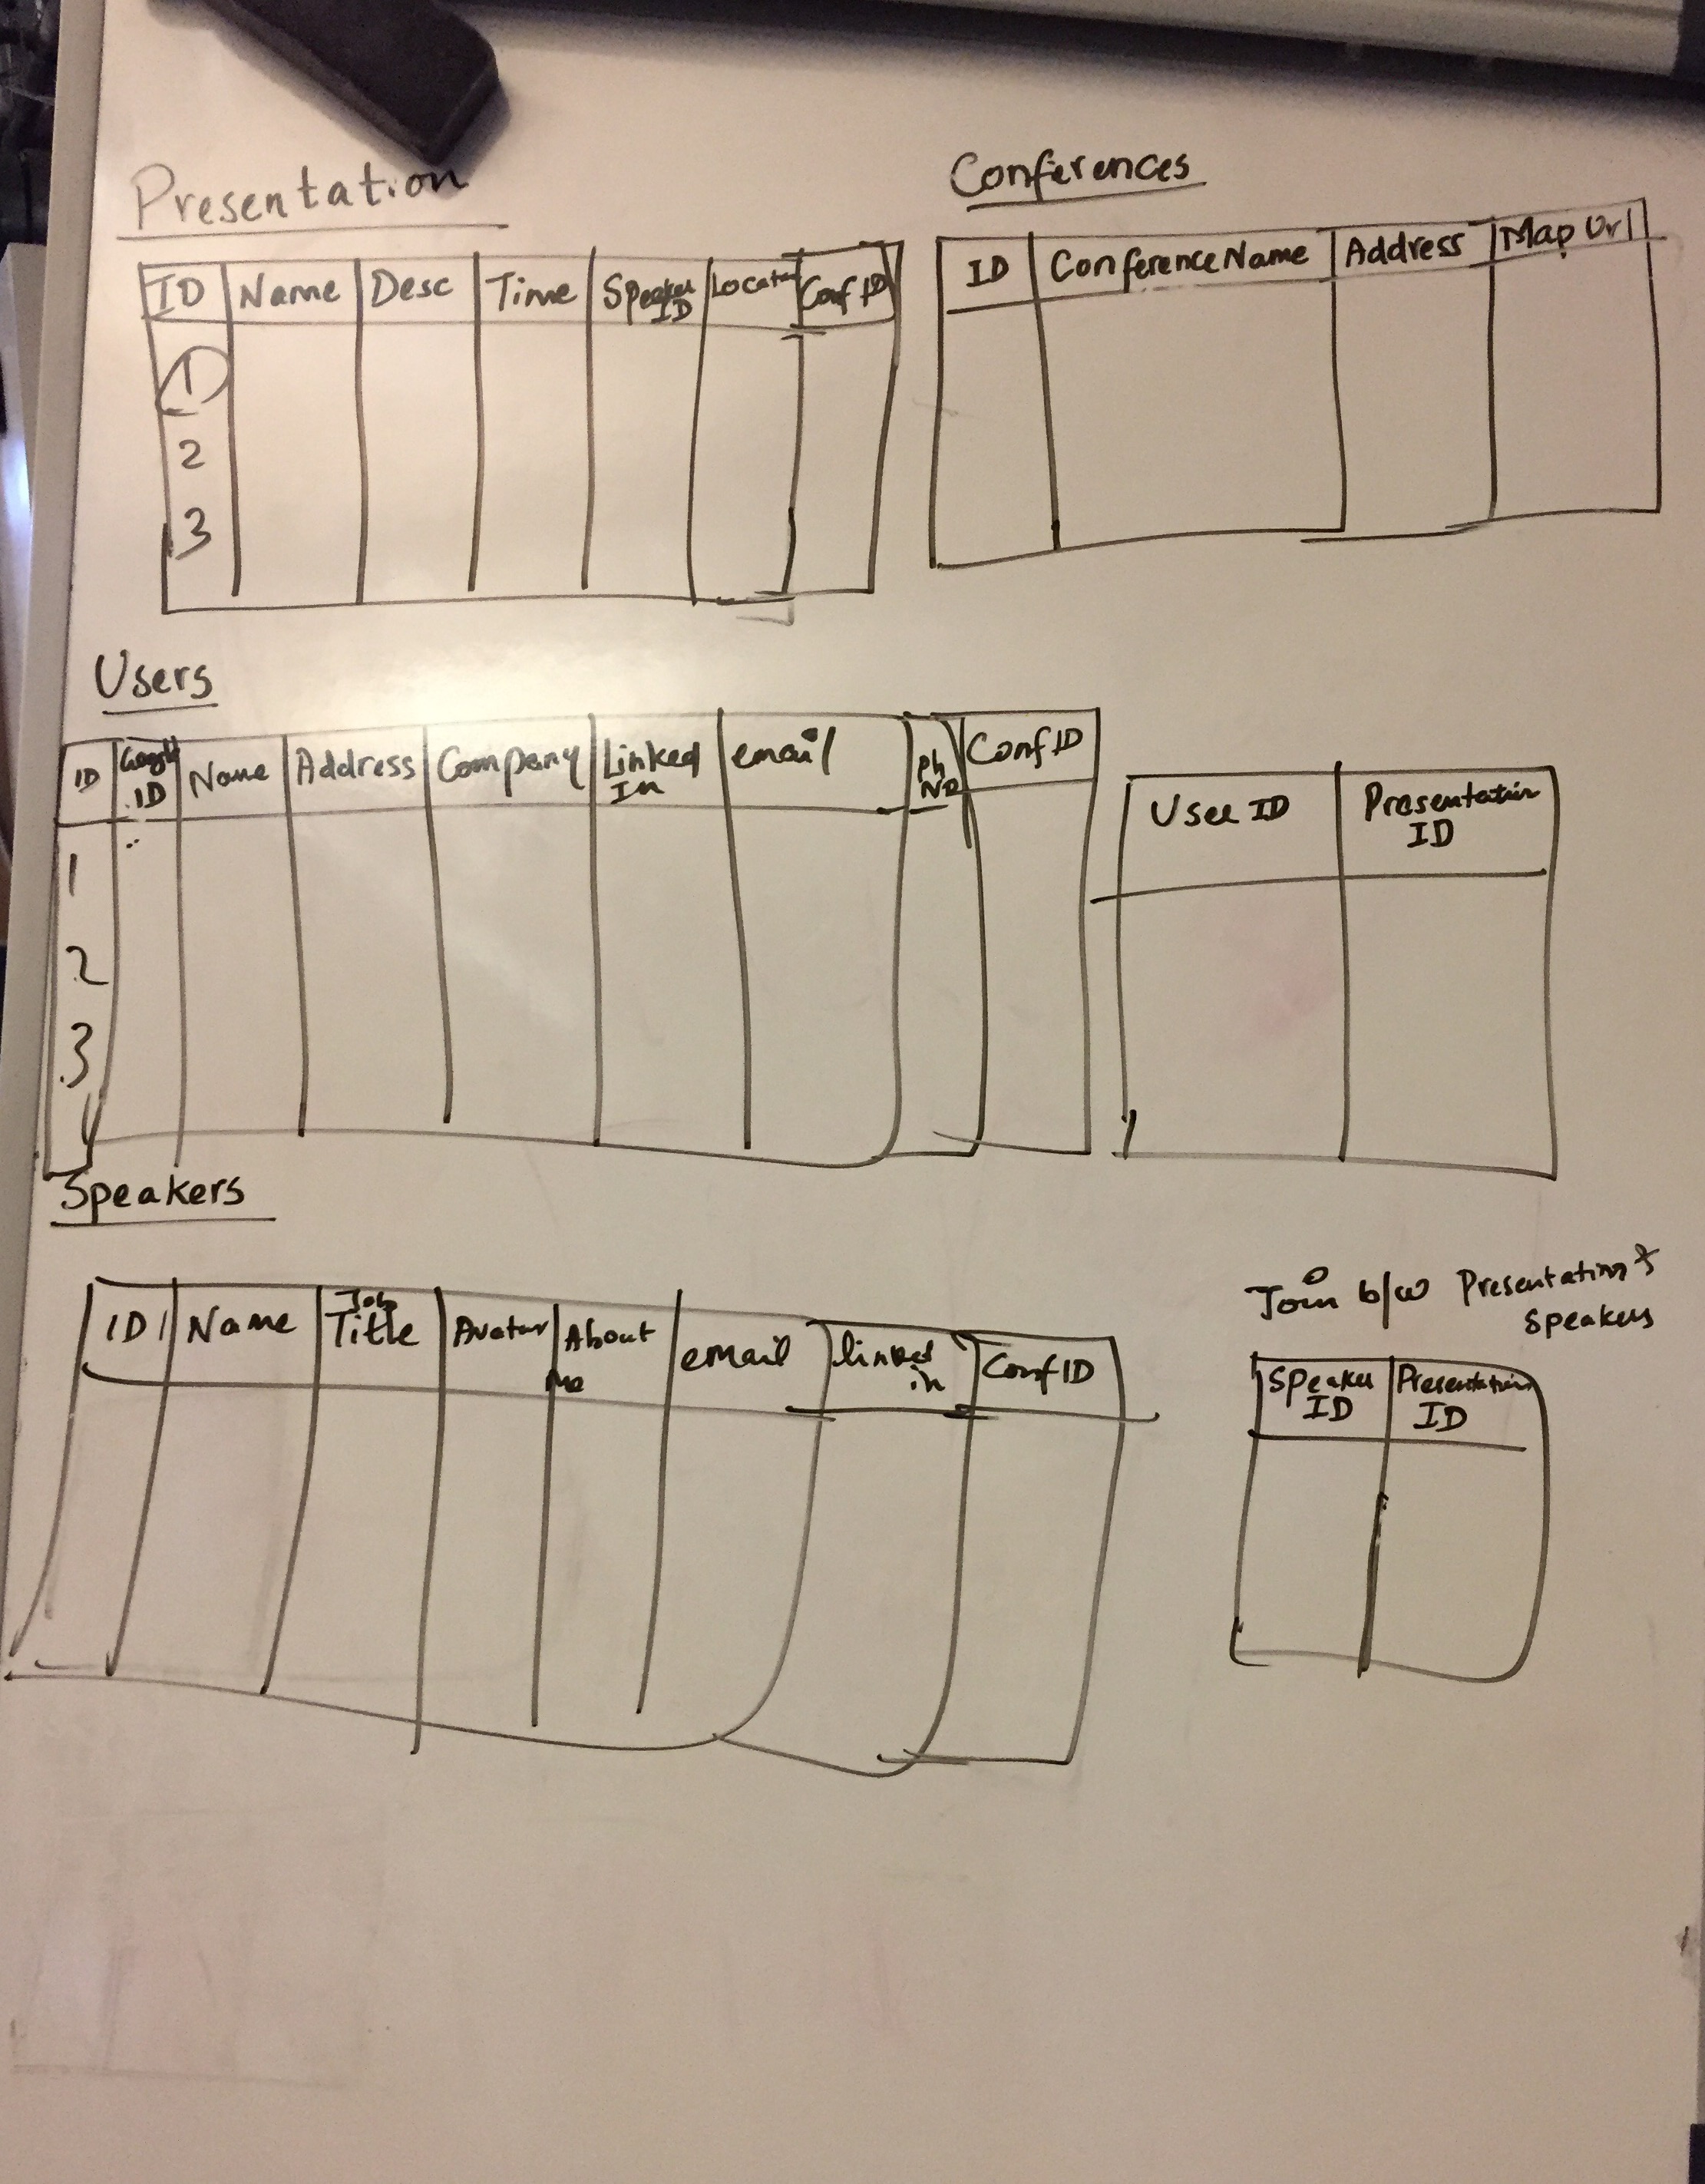 Presentation
ID Name Desc Time Speaker ID Location Conf ID
1
2
3
Conferences
ID Conference Name Address Map Url
Users
ID Google ID Name Address Company Linked In email Ph No Conf ID
1
2
3
User ID Presentation ID
Speakers
ID Name Job Title Avatar About Me email linked in Conf ID
Join b/w Presentation &
Speakers
Speaker ID Presentation ID